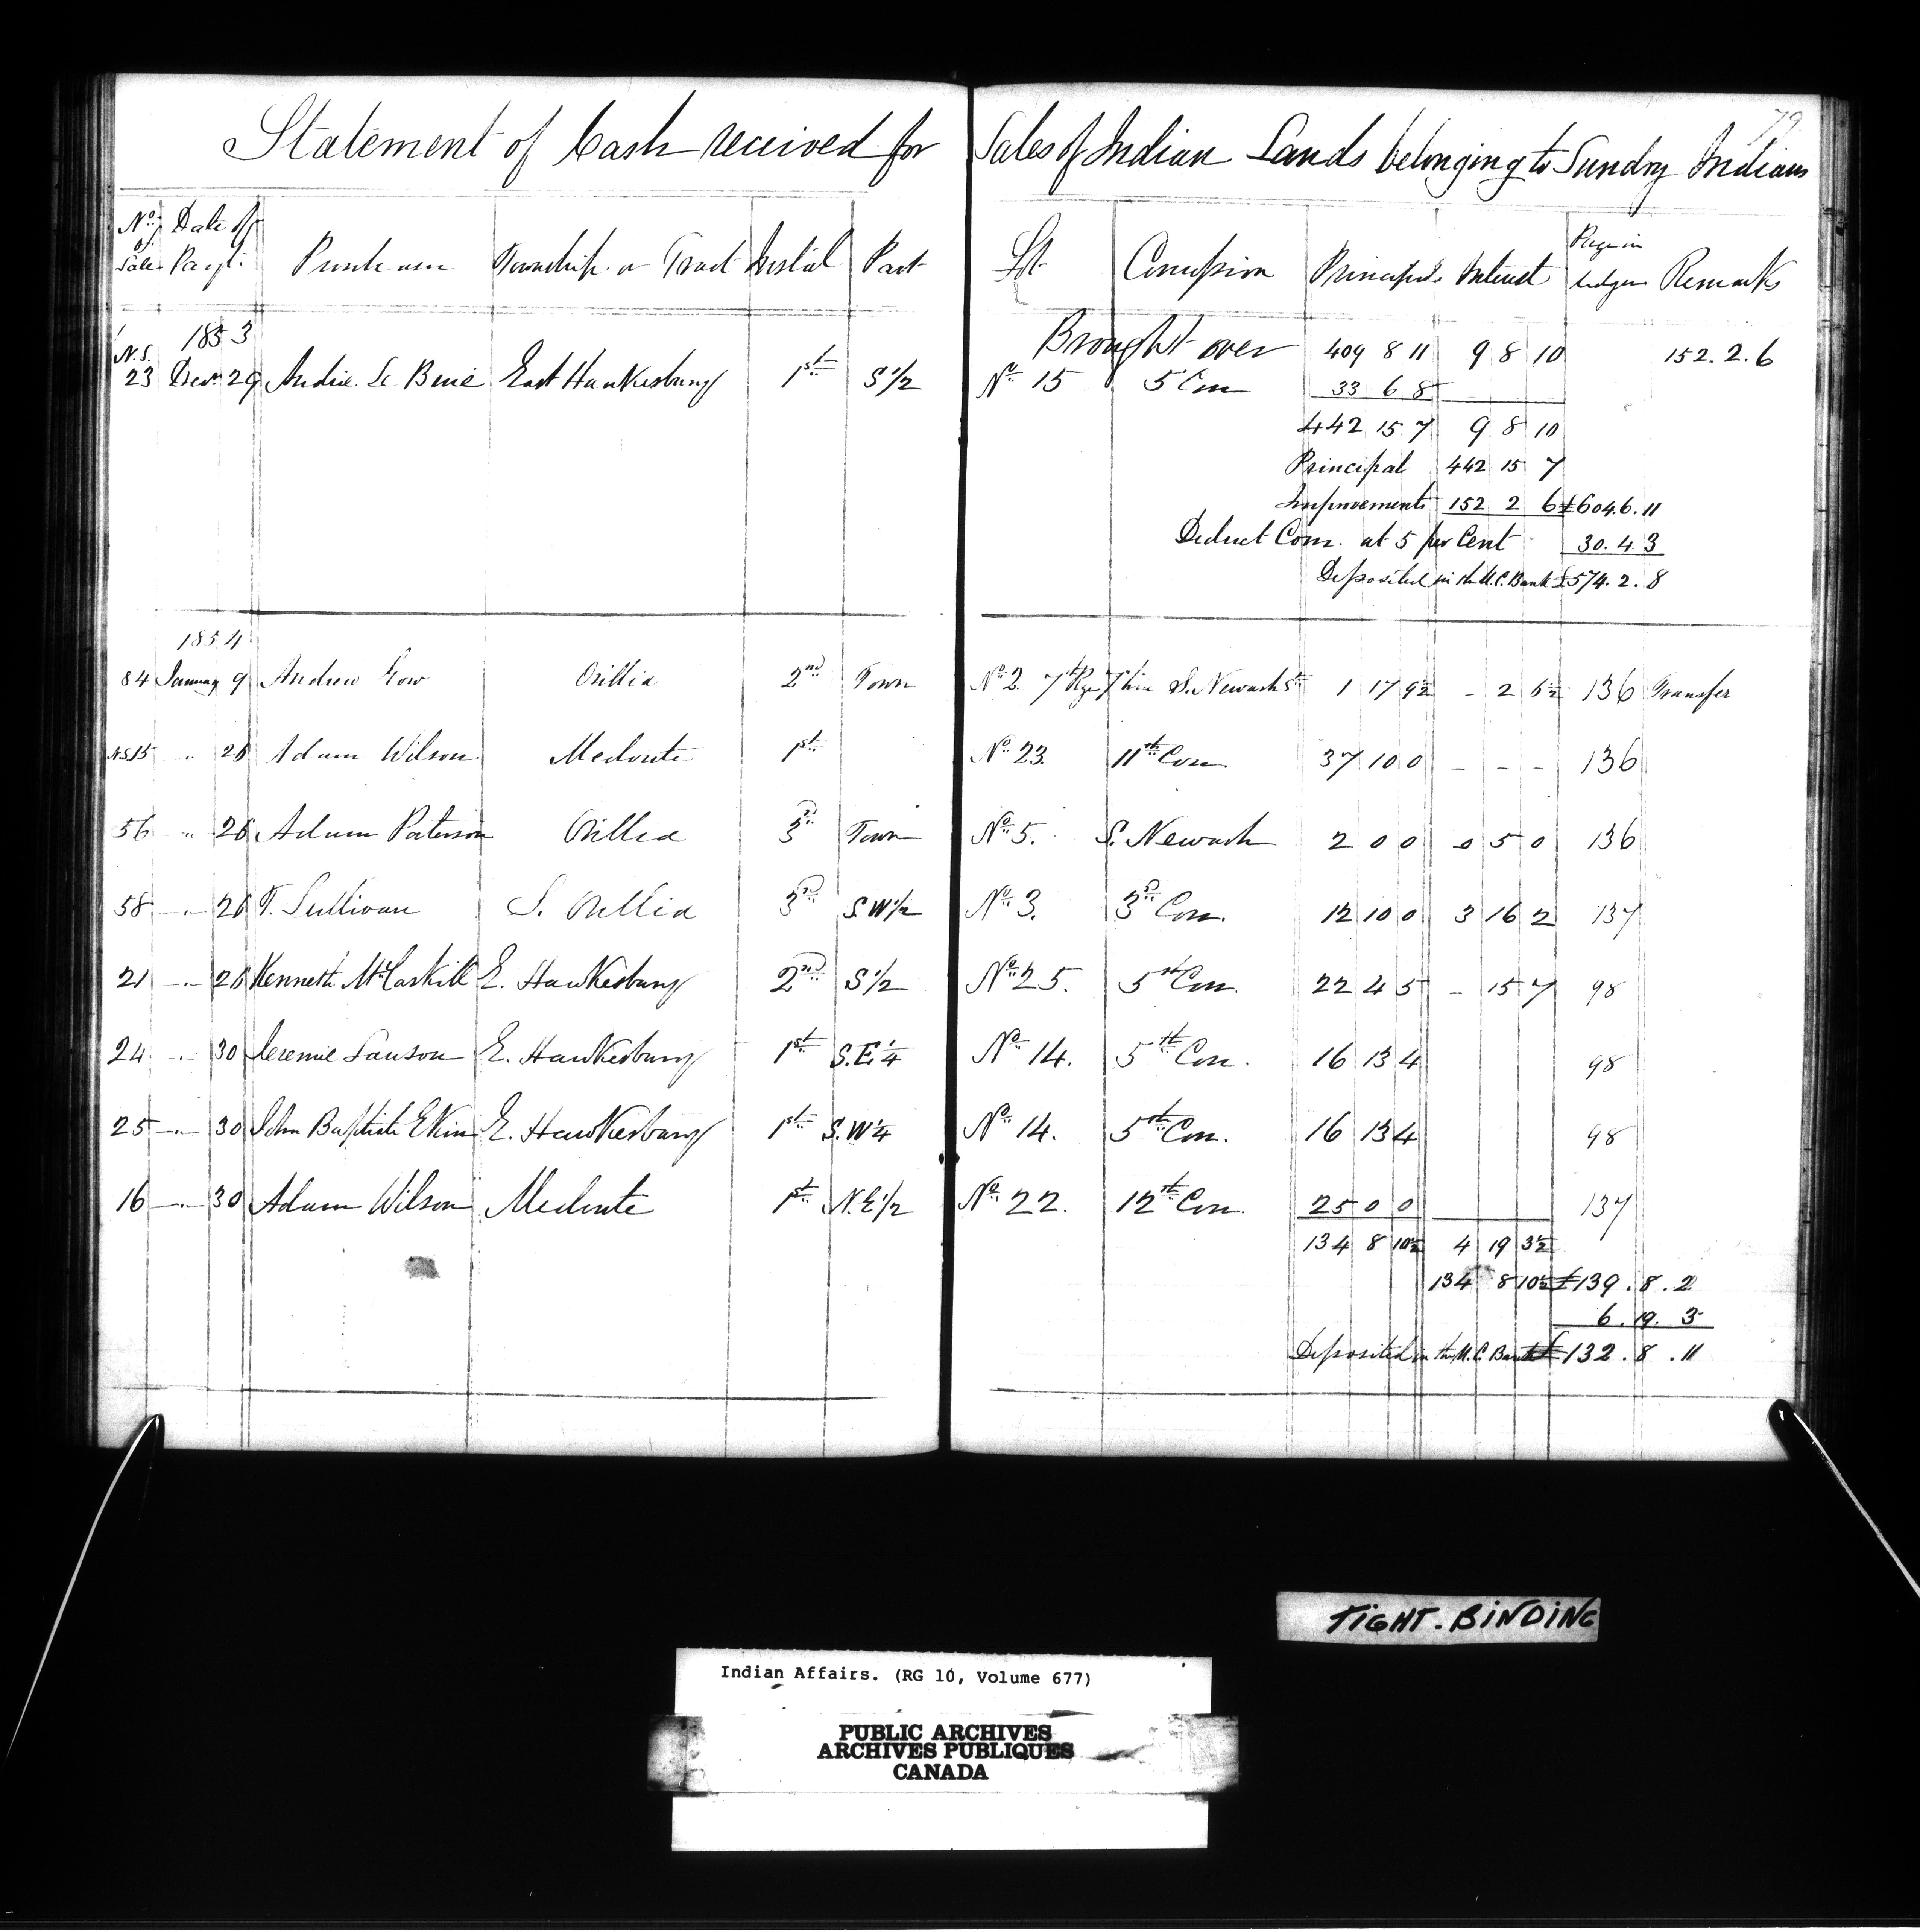 79
Statement of Cash received for Sales of Indian Lands belonging to Sundry Indians
No. of Sale Date of Payt. Purchaser Township or Tract Instal Part Lot Concession Principal Interest Page in Ledger Remarks
1853 Brought over 409 8 11 9 8 10 152.2.6
N.S. 23 Decr. 29 André Le Bené East Hawkesbury 1st S 1/2 No. 15 5 Con 33 6 8
442 15 7 9 8 10
Principal 442 15 7
Improvements 152 2 6 £604.6.11
Deduct Com. at 5 per Cent 30.4.3
Deposited in the U.C. Bank £574.2.8
1854
84 January 9 Andrew Gow Orillia 2nd Town No. 2 7th Rge S. Newash St. 1 17 9½ - 2 6½ 136 Transfer
N.S. 15 " 26 Adam Wilson Medonte 1st No. 23 11th Con. 37 10 0 - - - 136
56 " 26 Adam Paterson Orillia 3rd Town No. 5. S. Newash 2 0 0 0 5 0 136
58 - " - 26 T. Sullivan S. Orillia 3rd S.W 1/2 No. 3. 3rd Con. 12 10 0 3 16 2 137
21 - " - 26 Kenneth McCaskill E. Hawkesbury 2nd S 1/2 No. 25. 5th Con. 22 4 5 - 15 7 98
24 - " - 30 Jeremie Lauson E. Hawkesbury 1st S.E. 1/4 No. 14. 5th Con. 16 13 4 98
25 - " - 30 John Baptiste Ekin E. Hawkesbury 1st S.W 1/4 No. 14. 5th Con. 16 13 4 98
16 - " - 30 Adam Wilson Medonte 1st N.E 1/2 No. 22. 12th Con. 25 0 0 137
134 8 10½ 4 19 3½
134 8 10½ £139.8.2
6.19.3
Deposited in the U.C. Bank £132.8.11
TIGHT. BINDING
Indian Affairs. (RG 10, Volume 677)
PUBLIC ARCHIVES
ARCHIVES PUBLIQUES
CANADA